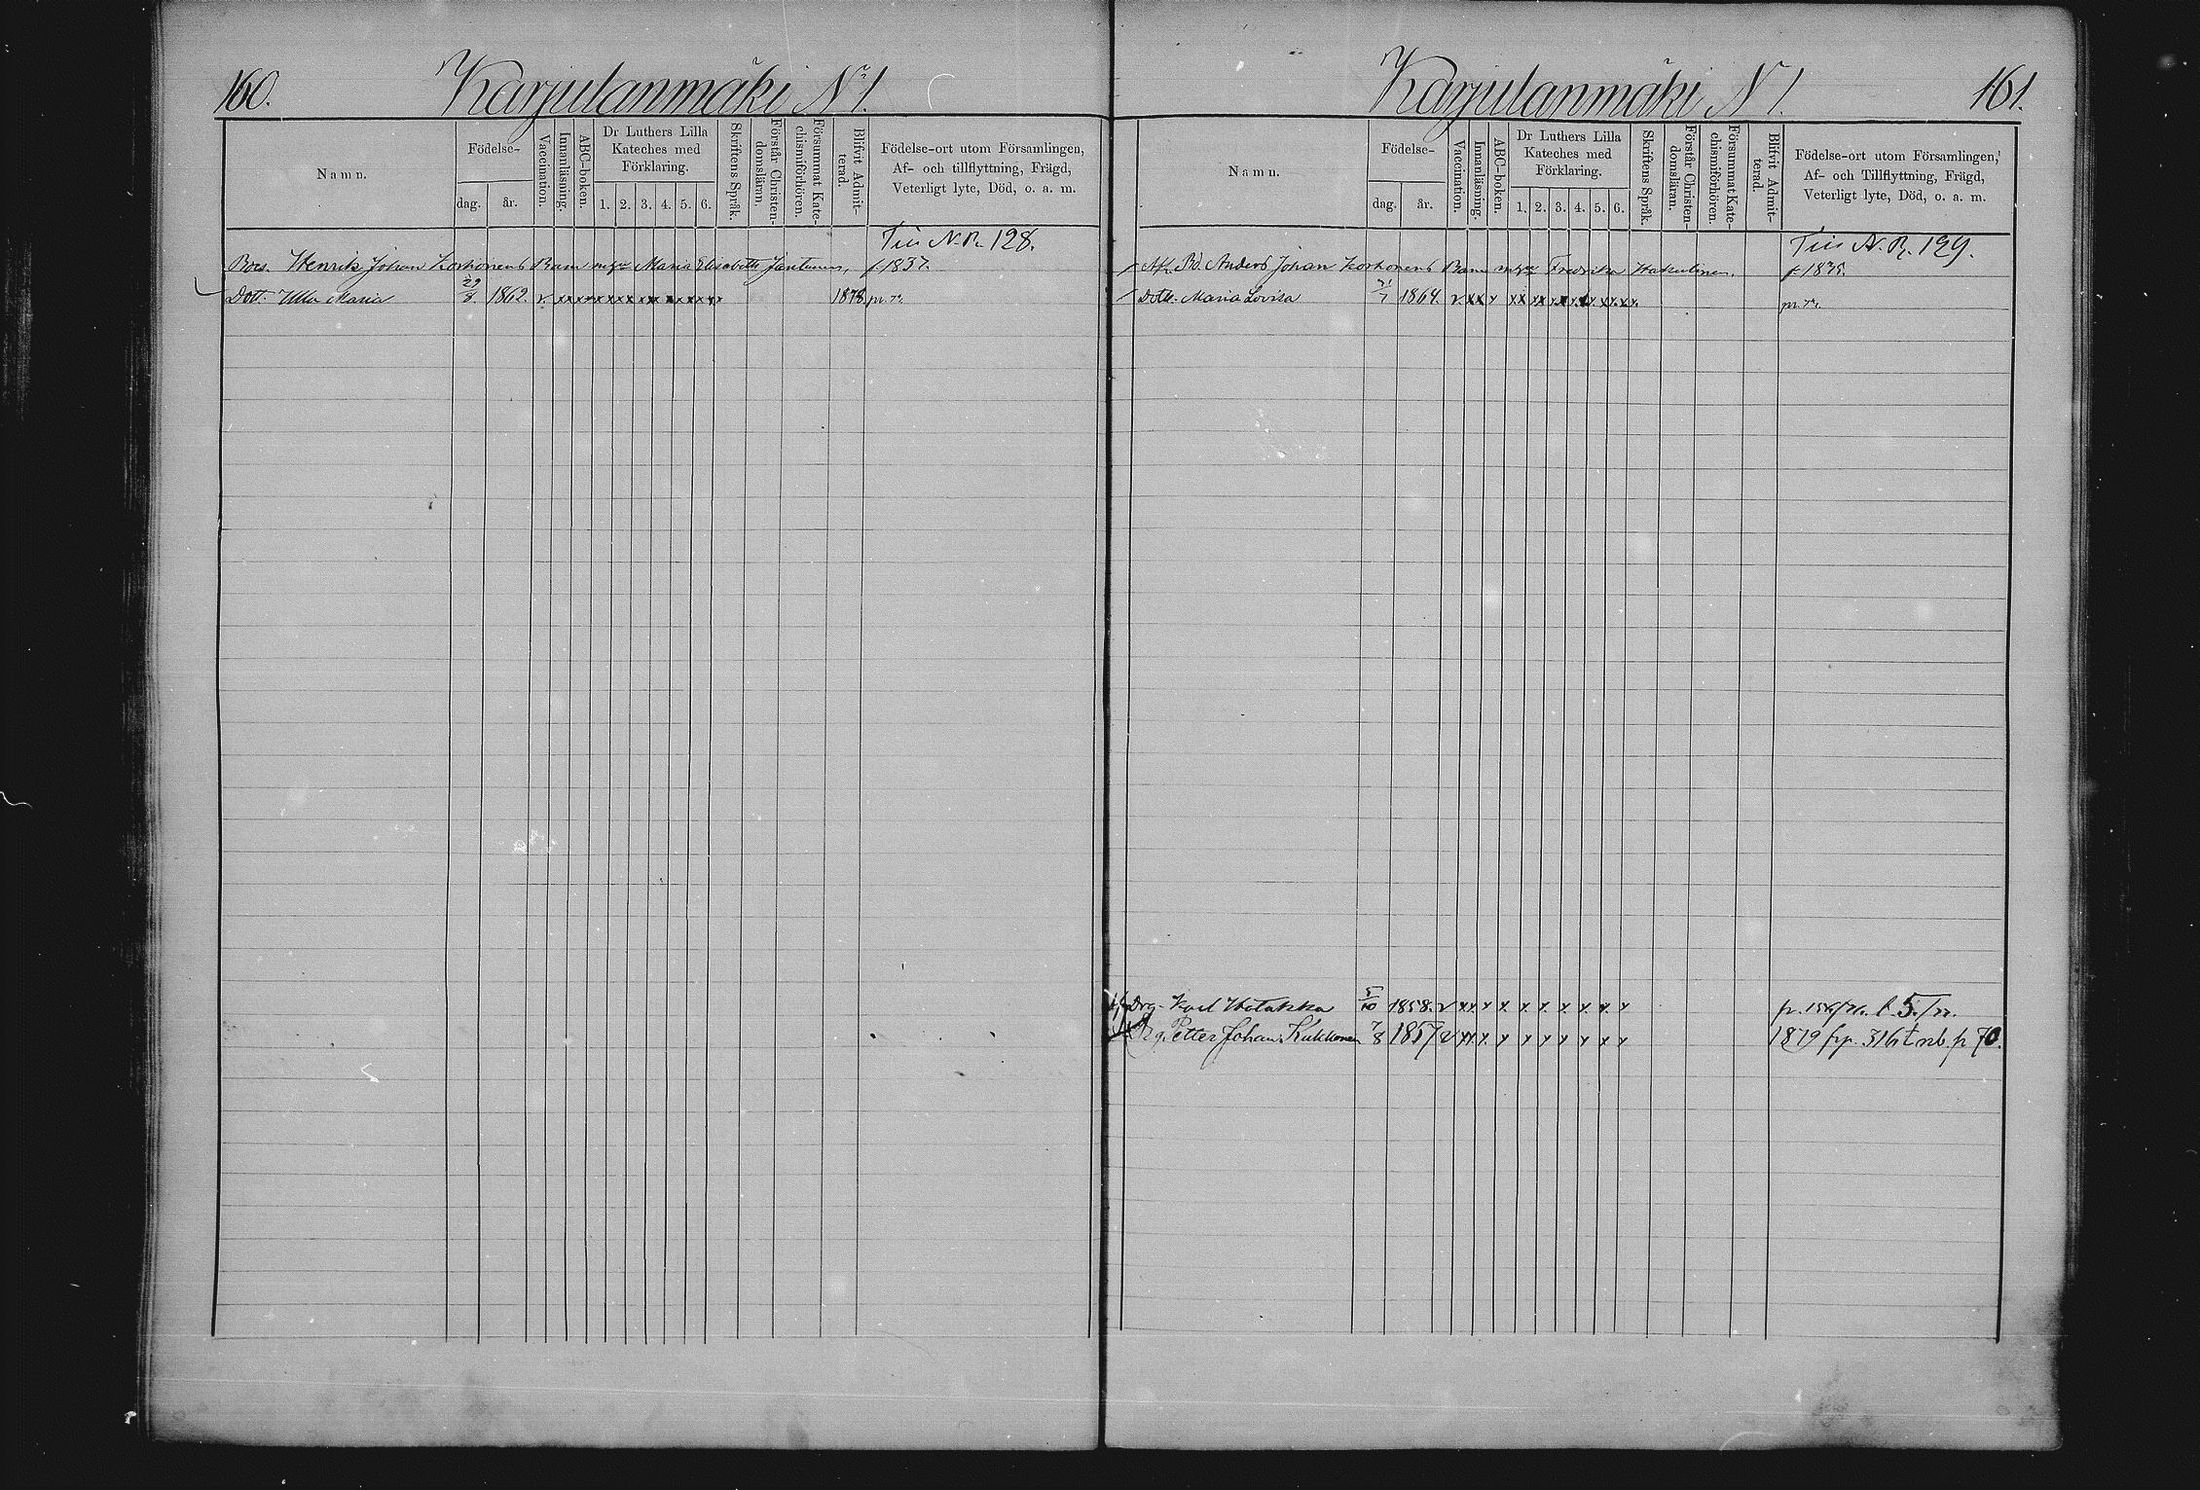 160. Karjulanmäki N 1.
Namn.
Födelse-
dag.
år.
Vaccination.
Innanläsning.
ABC-boken.
Dr Luthers Lilla
Kateches med
Förklaring.
1. 2. 3. 4. 5. 6.
Skriftens Språk.
Förstår Christen-
domsläran.
Försummat Kate-
chismiförhören.
Blifvit Admit-
terad.
Födelse-ort utom Församlingen,
Af- och tillflyttning, Frägd,
Veterligt lyte, Död, o. a. m.
128.
Henrik Johan Korhonens Barn Maria Elisabeth f. 1837.
Dott. Ulla Maria 29/8 1862. v xx xx xx xx xx xx xx xx 1878 pr.
Karjulanmäki N 1. 161.
Namn.
Födelse-
dag.
år.
Vaccination.
Innanläsning.
ABC-boken.
Dr Luthers Lilla
Kateches med
Förklaring.
1. 2. 3. 4. 5. 6.
Skriftens Språk.
Förstår Christen-
domsläran.
Försummat Kate-
chismiförhören.
Blifvit Admit-
terad.
Födelse-ort utom Församlingen,
Af- och Tillflyttning, Frägd,
Veterligt lyte, Död, o. a. m.
129.
Anders Johan Korhonens Barn Fredrika Hakulinen.
Dott. Maria Lovisa 1864. v xx x xx xx xx xx xx xx
Drg. 5/10 1858. v xx x x x x x x x
Petter Johan Kukkonen 7/8 1857 v xx x x x x x x x 1879 frp. 316 t nb. p 70.